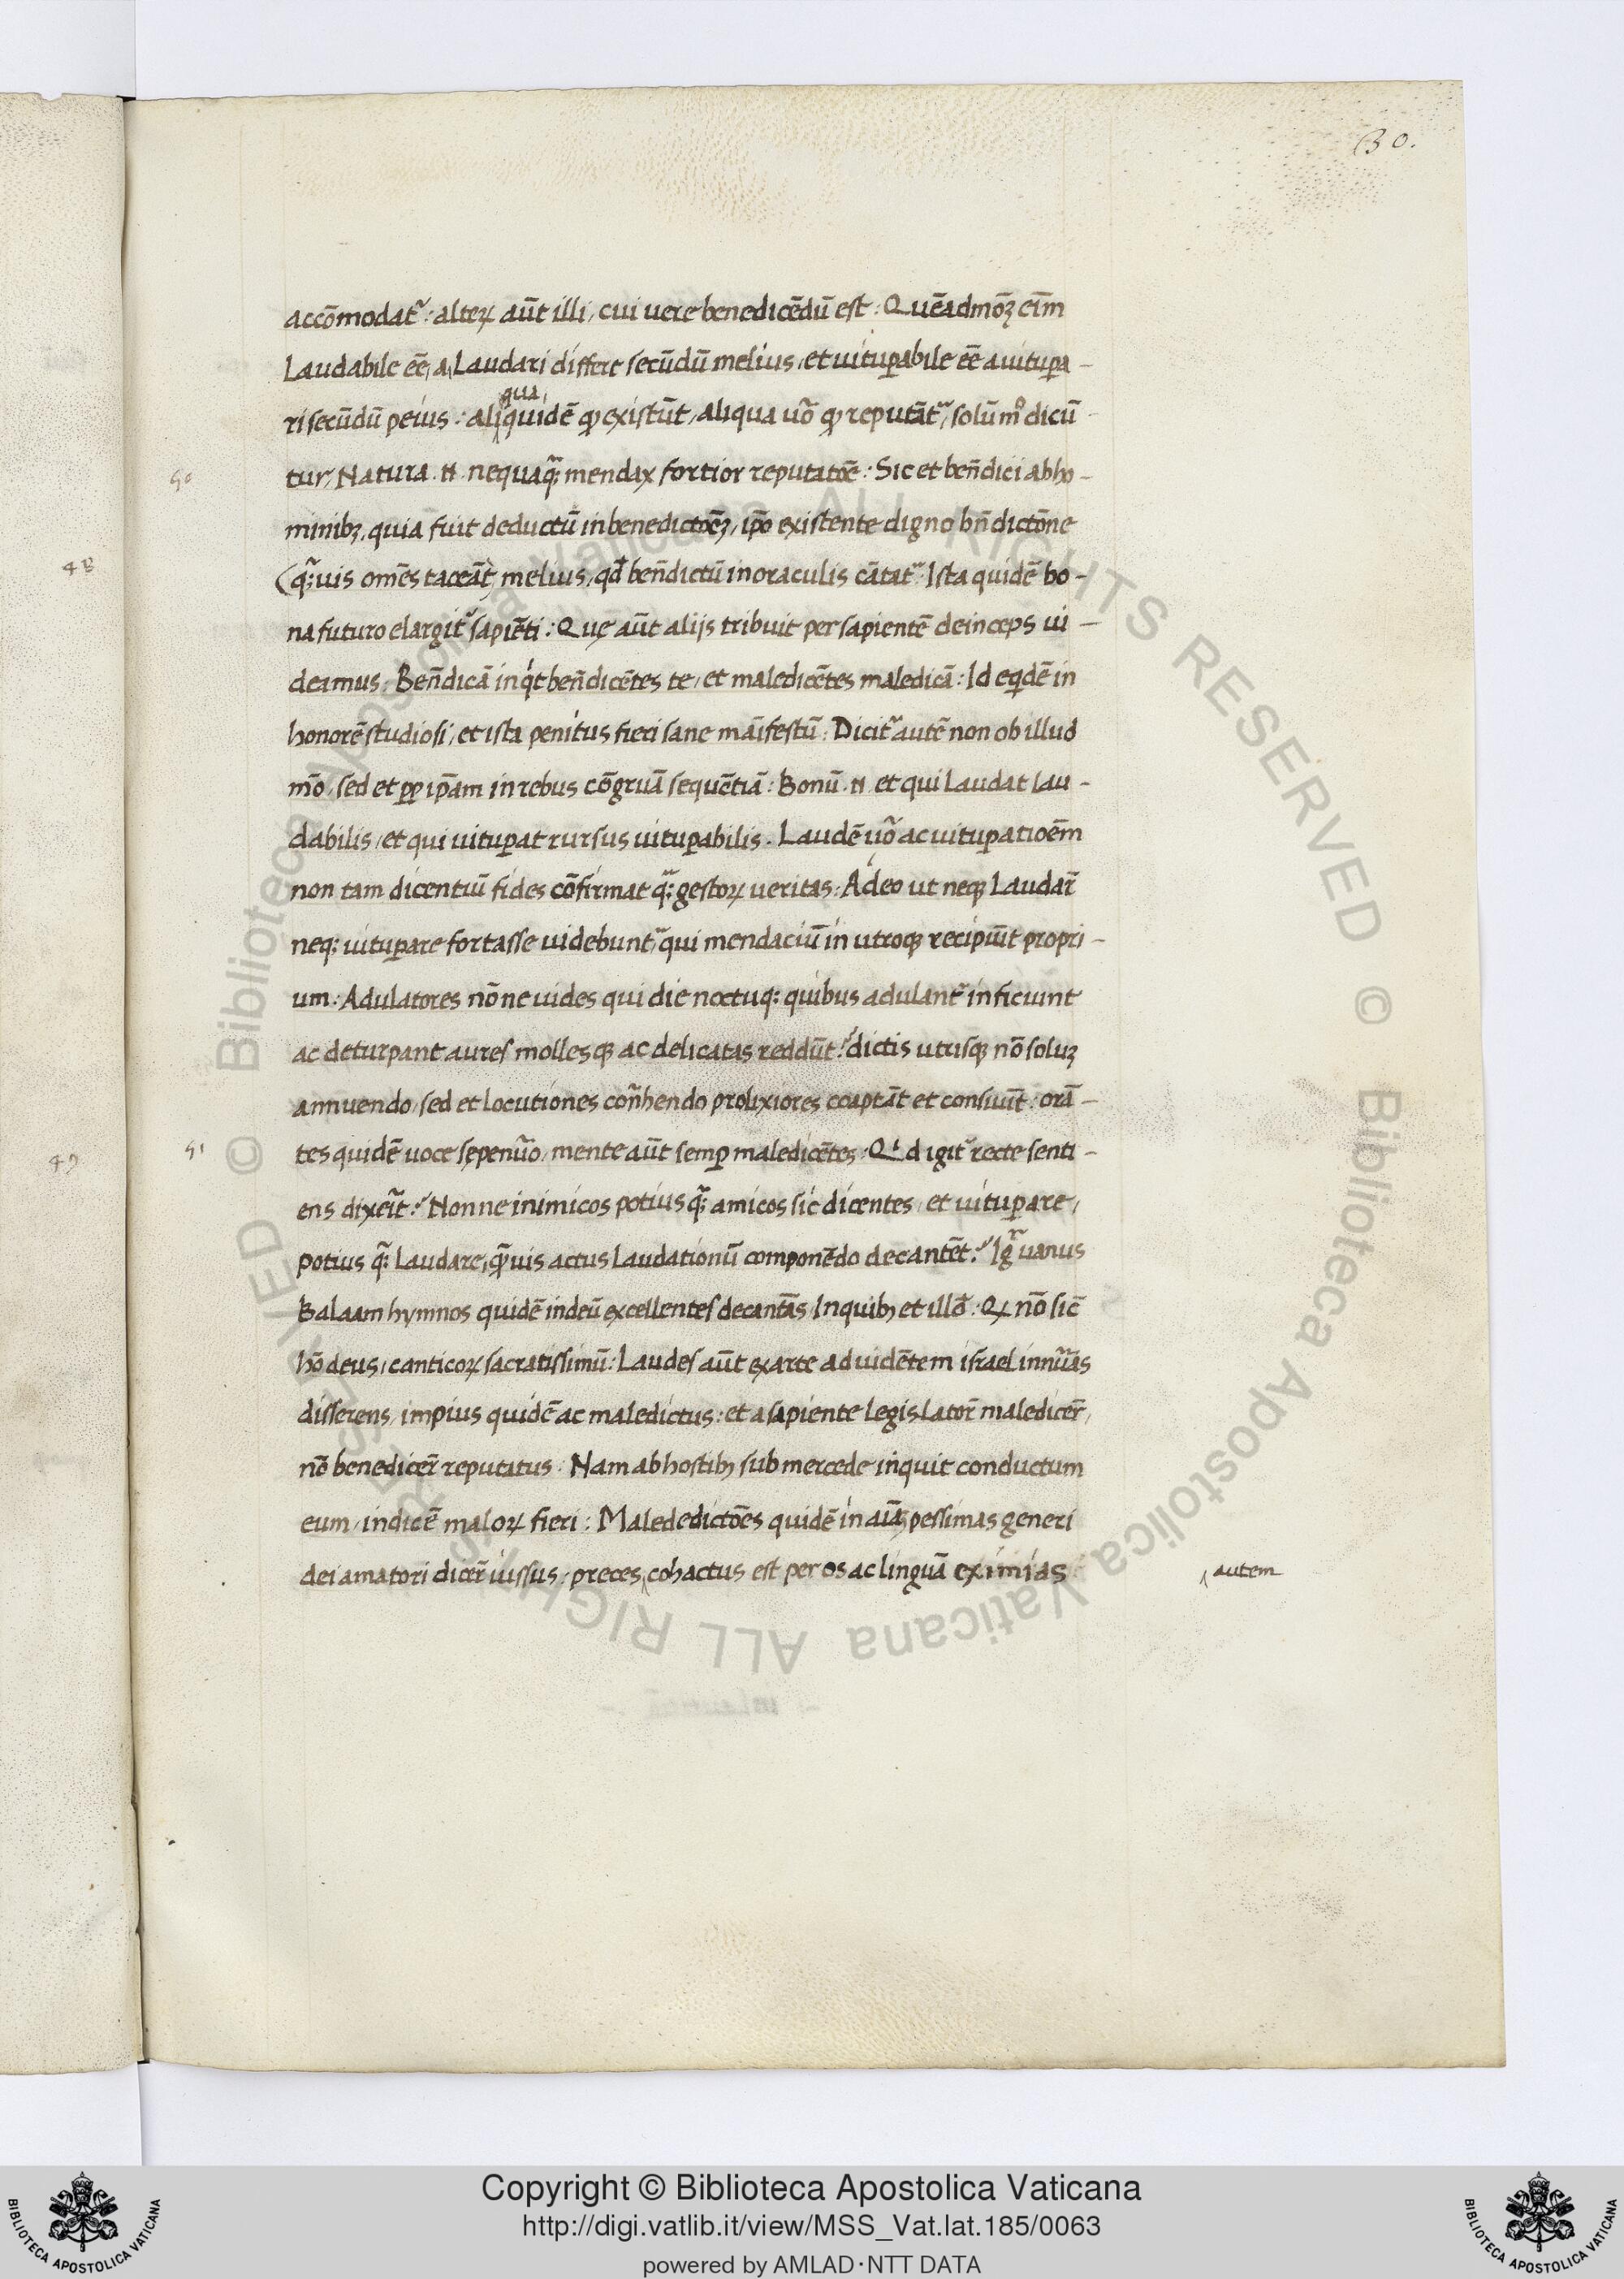 30.
accōmodat᷑ : alteꝝ aūt illi, cui uere benedicēdū est : Quēadmōꝫ eīm
Laudabile eē, a Laudari differt secūdū melius, et uituꝑabile eē a uituꝑa -
qua,
ri secūdū peius : aliquidē ꝙ existūt, aliqua uō ꝙ reputāt᷑, solūmº dicū -
50
tur, Natura .n. nequaqᷓꝫ mendax fortior reputatōe : Sic et beñdici ab ho -
minibꝫ, quia fuit deductū in benedictōeꝫ, ip̄o existente digno bn̄dictōne
48
(qᷓꝫuis omēs taceāt) melius, qđ beñdictū in oraculis cātat᷑ Ista quidē bo -
na futuro elargit᷑ sapiēti : Quę aūt alijs tribuit per sapientē deinceps ui -
deamus : Beñdicā inqt beñdicētes te, et maledicētes maledicā : Id eqdē in
honorē studiosi, et ista penitus fieri sane māifestū : Dicit᷑ autē non ob illud
mō, sed et ꝓp ip̄am in rebus cōgruā sequētiā : Bonū .n. et qui Laudat lau -
dabilis, et qui uituꝑat rursus uituꝑabilis . Laudē uō ac uituꝑatioēm
non tam dicentiū fides cōfirmat qᷓꝫ gestoꝝ ueritas : Adeo ut neqꝫ Laudar̄
neqꝫ uituꝑare fortasse uidebunt᷑, qui mendaciū in utroqꝫ recipiūt propri -
um : Adulatores nōne uides qui die noctuqꝫ quibus adulant᷑ inficiunt
ac deturpant aures mollesqꝫ ac delicatas reddūt ? dictis utrisqꝫ nō soluꝫ
annuendo, sed et locutiones coñhendo prolixiores coaptāt et consuūt : orā -
49
51
tes quidē uoce sępenūo, mente aūt semꝑ maledicētes : Qd igit᷑ recte senti -
ens dixeīt ? Nonne inimicos potius qᷓꝫ amicos sic dicentes, et uituꝑare,
potius qᷓꝫ Laudare, qᷓꝫuis actus Laudationū componēdo decantēt ? Ig᷑ uanus
Balaam hymnos quidē in deū excellentes decantās, In quibꝫ et illđ : Qꝫ nō sic̄
hō deus, canticoꝝ sacratissimū : Laudes aūt ex arte ad uidētem israel innūas
disserens, impius quidē ac maledictus : et a sapiente legislator̄ maledicer̄,
nō benedicer̄ reputatus : Nam ab hostibꝫ sub mercede inquit conductum
eum, indicē maloꝝ fieri : Malededictōes quidē in aiāꝫ pessimas generi
dei amatori dicer̄ iussus, preces, cohactus est per os ac linguā eximias
autem
Copyright © Biblioteca Apostolica Vaticana
http://digi.vatlib.it/view/MSS_Vat.lat.185/0063
powered by AMLAD·NTT DATA
BIBLIOTECA APOSTOLICA VATICANA
BIBLIOTECA APOSTOLICA VATICANA
© Biblioteca Apostolica Vaticana ALL RIGHTS RESERVED
© Biblioteca Apostolica Vaticana ALL RIGHTS RESERVED